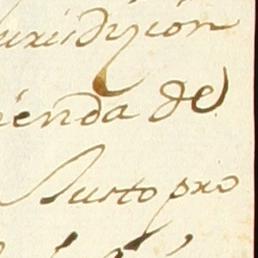 urisdizion
ienda de
Susto pro